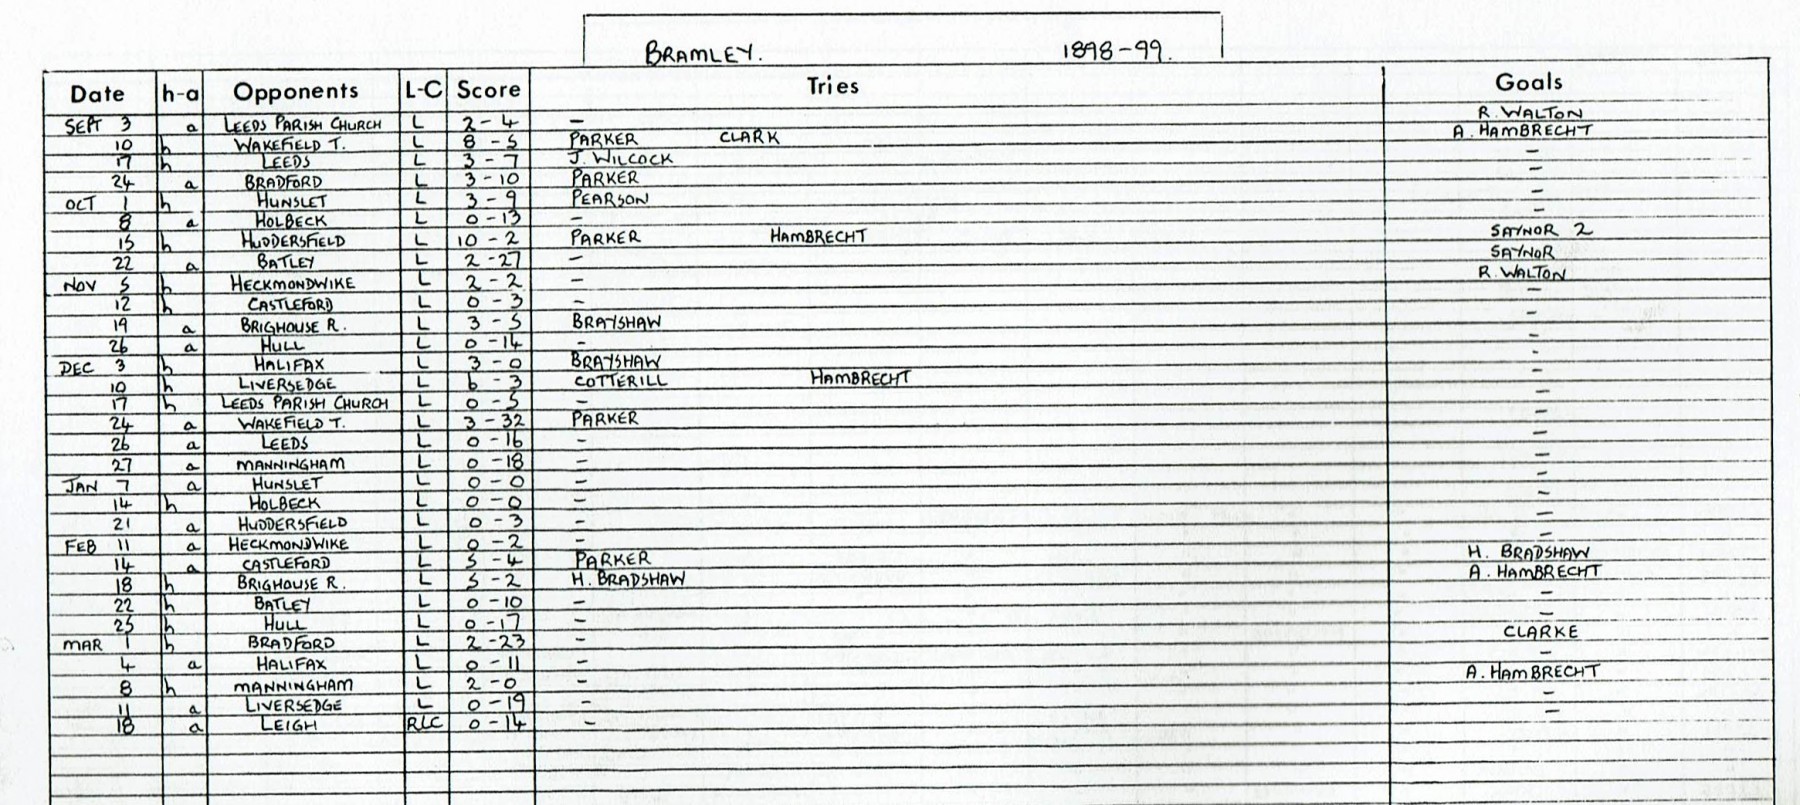 BRAMLEY. 1898-99.
Date h-a Opponents L-C Score Tries Goals
SEPT 3 a LEEDS PARISH CHURCH L 2-4 - R. WALTON
10 h WAKEFIELD T. L 8-5 PARKER CLARK A. HAMBRECHT
17 h LEEDS L 3-7 J. WILCOCK -
24 a BRADFORD L 3-10 PARKER -
OCT 1 h HUNSLET L 3-9 PEARSON -
8 a HOLBECK L 0-13 - -
15 h HUDDERSFIELD L 10-2 PARKER HAMBRECHT SAYNOR 2
22 a BATLEY L 2-27 - SAYNOR
NOV 5 h HECKMONDWIKE L 2-2 - R. WALTON
12 h CASTLEFORD L 0-3 - -
19 a BRIGHOUSE R. L 3-5 BRAYSHAW -
26 a HULL L 0-14 - -
DEC 3 h HALIFAX L 3-0 BRAYSHAW -
10 h LIVERSEDGE L 6-3 COTTERILL HAMBRECHT -
17 h LEEDS PARISH CHURCH L 0-5 - -
24 a WAKEFIELD T. L 3-32 PARKER -
26 a LEEDS L 0-16 - -
27 a MANNINGHAM L 0-18 - -
JAN 7 a HUNSLET L 0-0 - -
14 h HOLBECK L 0-0 - -
21 a HUDDERSFIELD L 0-3 - -
FEB 11 a HECKMONDWIKE L 0-2 - -
14 a CASTLEFORD L 5-4 PARKER H. BRADSHAW
18 h BRIGHOUSE R. L 5-2 H. BRADSHAW A. HAMBRECHT
22 h BATLEY L 0-10 - -
25 h HULL L 0-17 - -
MAR 1 h BRADFORD L 2-23 - CLARKE
4 a HALIFAX L 0-11 - -
8 h MANNINGHAM L 2-0 - A. HAMBRECHT
11 a LIVERSEDGE L 0-19 - -
18 a LEIGH RLC 0-14 - -